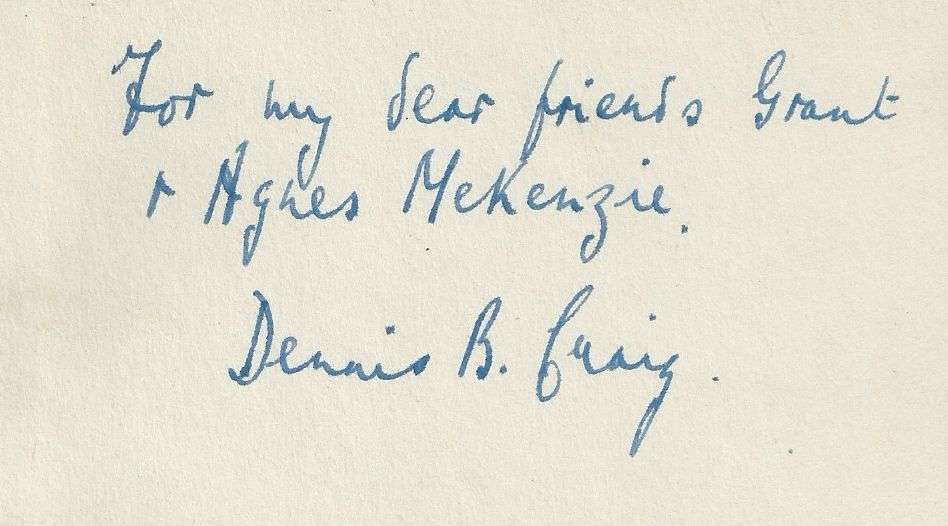 For my dear friends Grant
& Agnes McKenzie.
Dennis B. Craig.